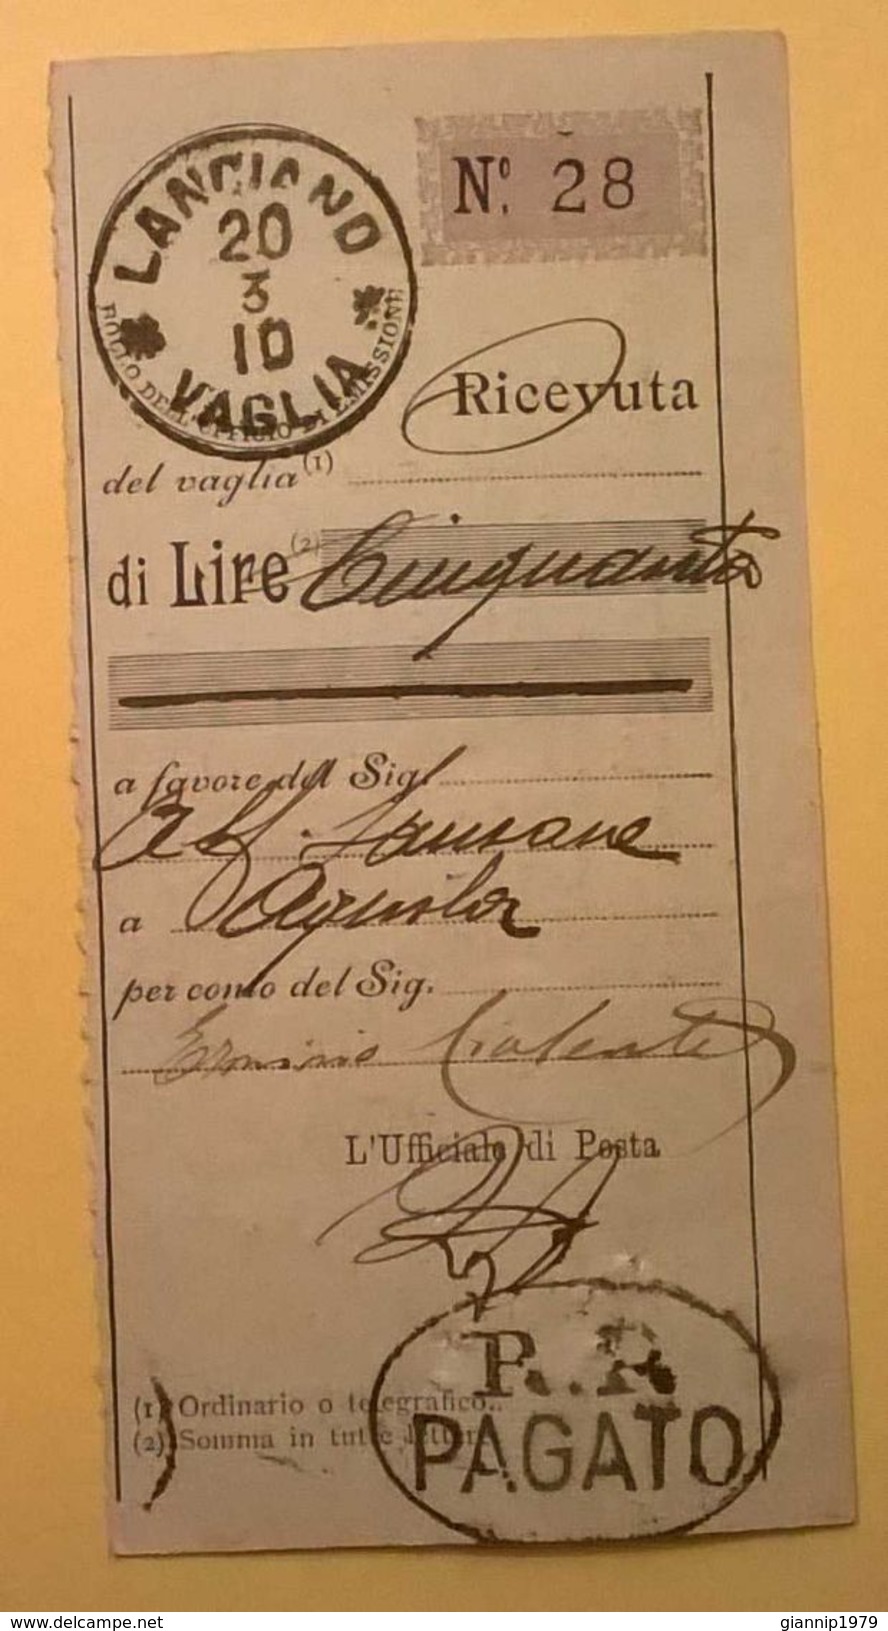 LANCIANO
20
3
10
VAGLIA
BOLLO DELL'UFFICIO DI EMISSIONE
Nº. 28
Ricevuta
del vaglia (1)
di Lire (2) Cinquanta
a favore del Sig.
a Aquila
per conto del Sig.
Erminio
L'Ufficiale di Posta
R.R.
PAGATO
(1) Ordinario o telegrafico.
(2) Somma in tutte lettere
delcampe.net
giannip1979